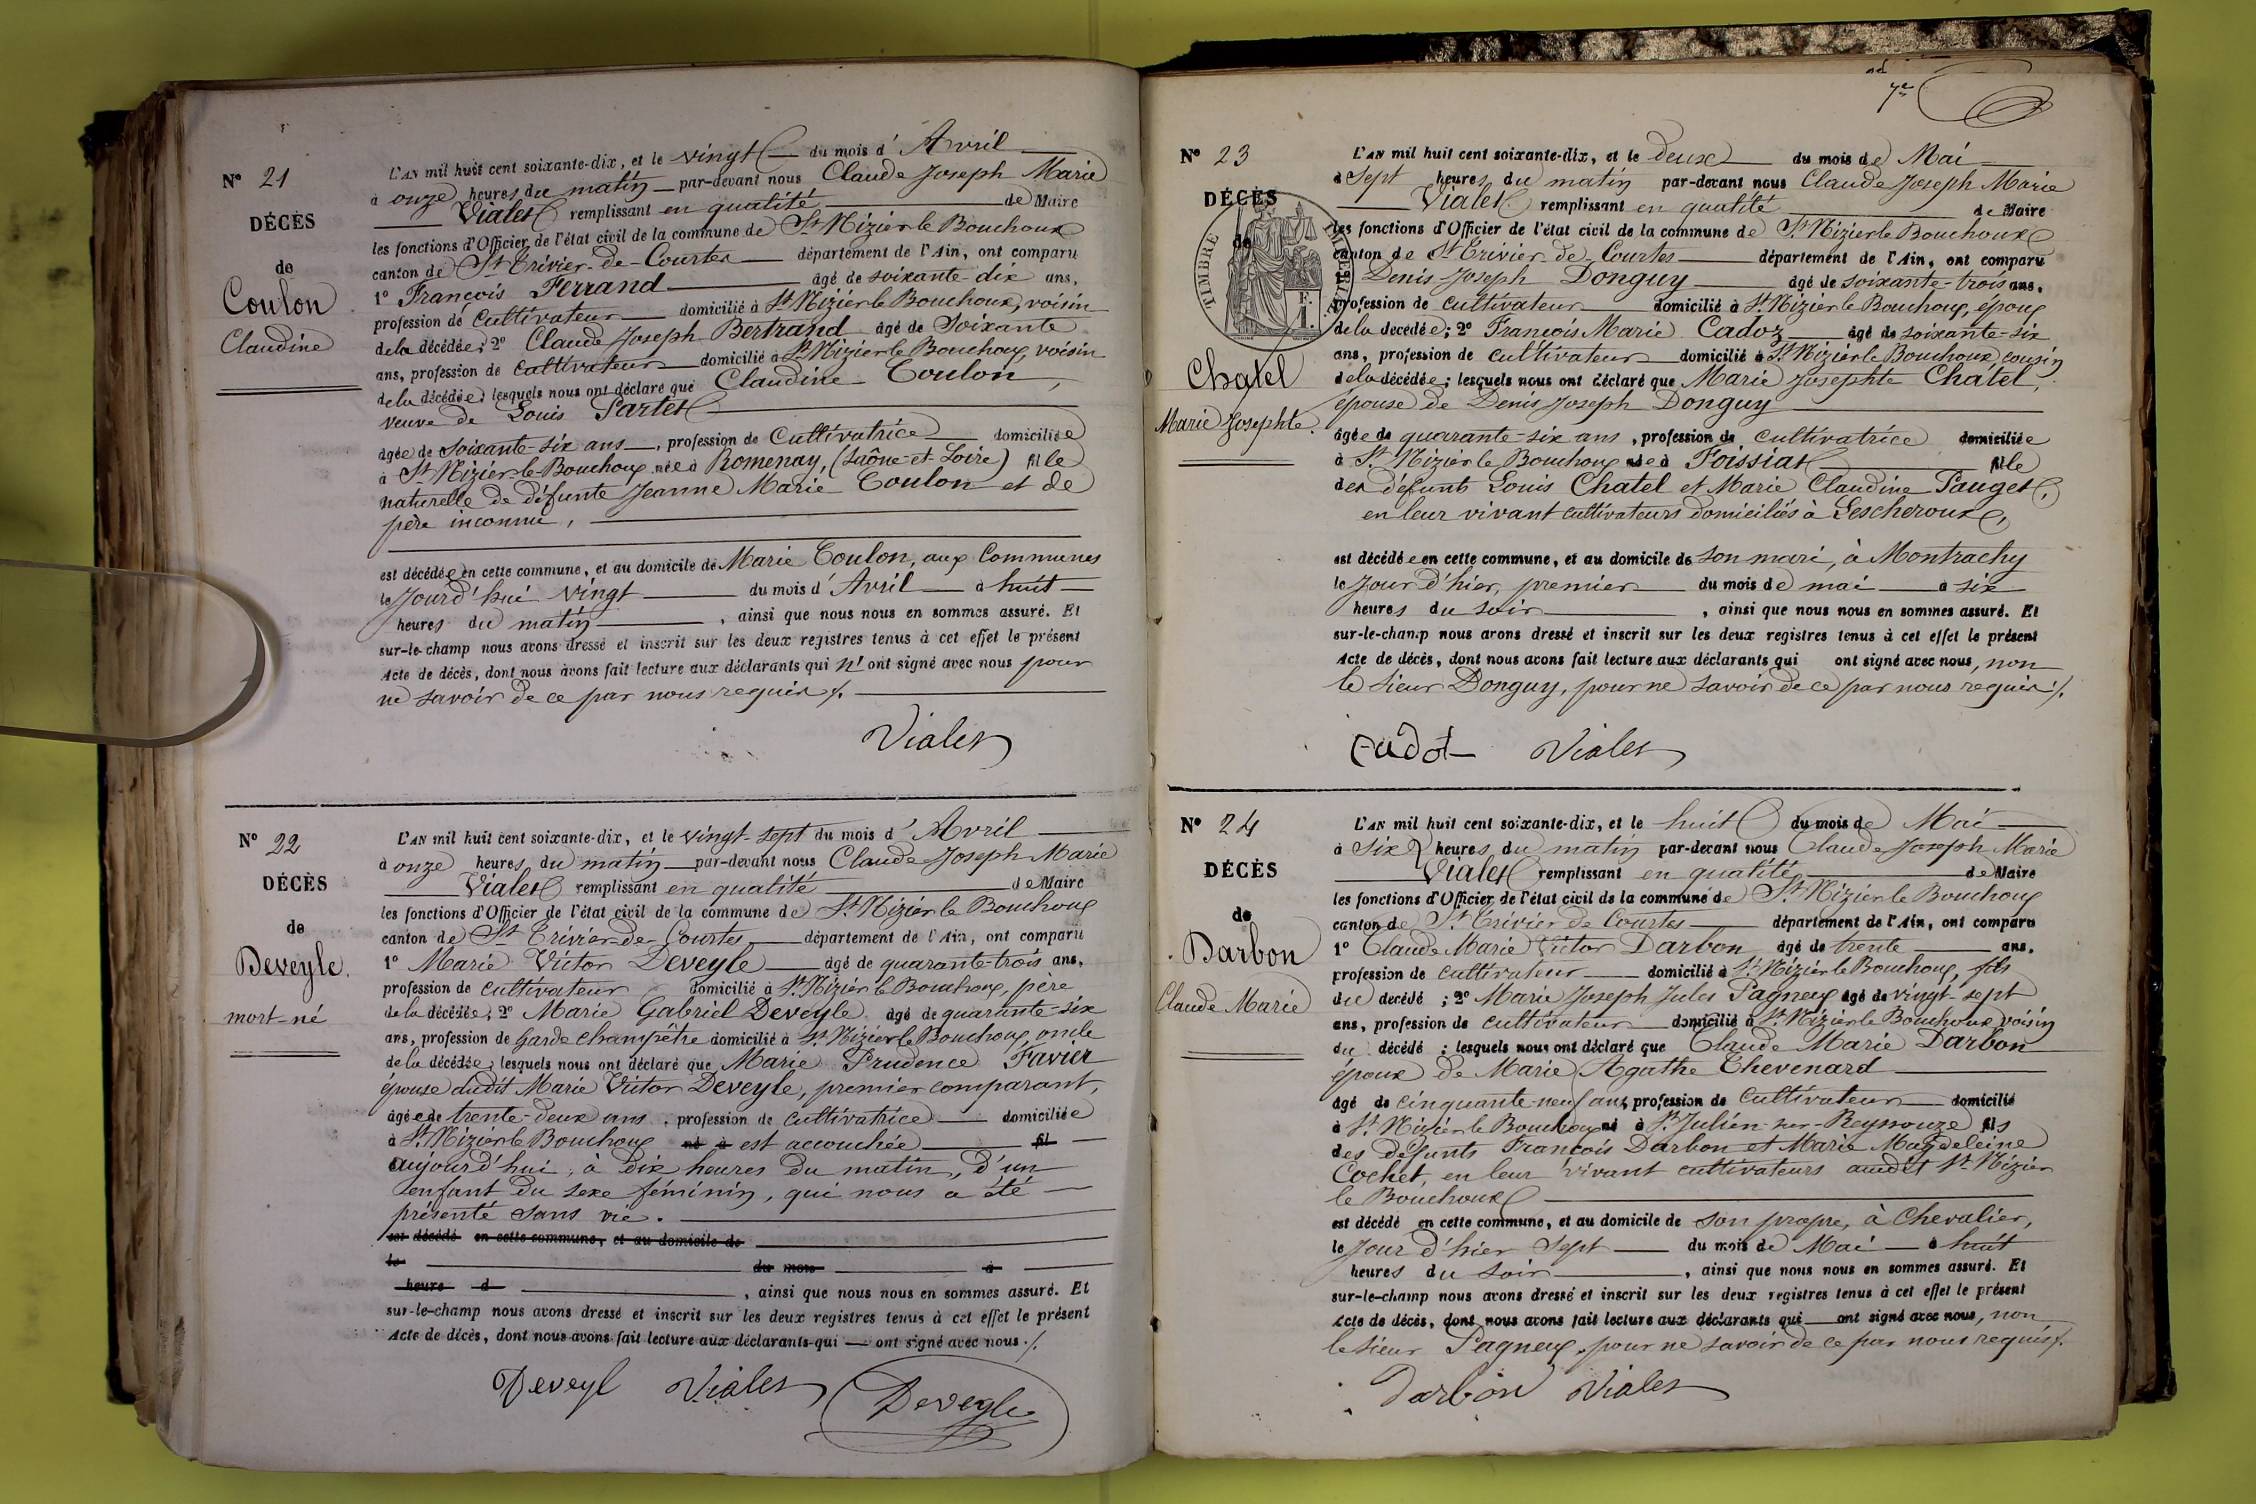 N° 21
DÉCÈS
de
Coulon
Claudine
L'AN mil huit cent soixante-dix, et le vingt du mois d'Avril
à onze heures du matin par-devant nous Claude Joseph Marie
Vialet remplissant en qualité de Maire
les fonctions d'Officier de l'état civil de la commune de St Nizier le Bouchoux
canton de St Trivier-de-Courtes département de l'Ain, ont comparu
1° François Ferrand âgé de soixante dix ans,
profession de cultivateur domicilié à St Nizier le Bouchoux, voisin
de la décédée; 2° Claude Joseph Bertrand âgé de Soixante
ans, profession de cultivateur domicilié à St Nizier le Bouchoux, voisin
de la décédée; lesquels nous ont déclaré que Claudine Coulon,
veuve de Louis Partet
âgée de soixante-six ans, profession de cultivatrice domiciliée
à St Nizier-le-Bouchoux née à Romenay, (Saône-et-Loire) fille
naturelle de défunte Jeanne Marie Coulon et de
père inconnu,
est décédée en cette commune, et au domicile de Marie Coulon, aux Communes
le Jourd'hui vingt du mois d'Avril à huit
heures du matin, ainsi que nous nous en sommes assuré. Et
sur-le-champ nous avons dressé et inscrit sur les deux registres tenus à cet effet le présent
Acte de décès, dont nous avons fait lecture aux déclarants qui n'ont signé avec nous pour
ne savoir de ce par nous requis ./.
Vialet
N° 22
DÉCÈS
de
Deveyle.
mort-né
L'AN mil huit cent soixante-dix, et le vingt-sept du mois d'Avril
à onze heures du matin par-devant nous Claude Joseph Marie
Vialet remplissant en qualité de Maire
les fonctions d'Officier de l'état civil de la commune de St Nizier le Bouchoux
canton de St Trivier-de-Courtes département de l'Ain, ont comparu
1° Marie Victor Deveyle âgé de quarante-trois ans,
profession de cultivateur domicilié à St Nizier le Bouchoux, père
de la décédée; 2° Marie Gabriel Deveyle âgé de quarante-six
ans, profession de Garde champêtre domicilié à St Nizier le Bouchoux, oncle
de la décédée; lesquels nous ont déclaré que Marie Prudence Favier
épouse dudit Marie Victor Deveyle, premier comparant,
âgée de trente-deux ans, profession de cultivatrice domiciliée
à St Nizier le Bouchoux né à est accouchée fil
aujourd'hui, à dix heures du matin, d'un
enfant du sexe féminin, qui nous a été
présenté sans vie.
est décédé en cette commune, et au domicile de
le du mois à
heure d , ainsi que nous nous en sommes assuré. Et
sur-le-champ nous avons dressé et inscrit sur les deux registres tenus à cet effet le présent
Acte de décès, dont nous avons fait lecture aux déclarants qui ont signé avec nous ./.
Deveyl Vialet Deveyle
7e
N° 23
DÉCÈS
de
TIMBRE IMPÉRIAL
1 F.
Chatel
Marie Josephte.
L'AN mil huit cent soixante-dix, et le deux du mois de Mai
à Sept heures du matin par-devant nous Claude Joseph Marie
Vialet remplissant en qualité de Maire
les fonctions d'Officier de l'état civil de la commune de St Nizier le Bouchoux
canton de St Trivier-de-Courtes département de l'Ain, ont comparu
1° Denis Joseph Donguy âgé de soixante-trois ans,
profession de cultivateur domicilié à St Nizier le Bouchoux, époux
de la décédée; 2° François Marie Cadoz âgé de soixante-six
ans, profession de cultivateur domicilié à St Nizier le Bouchoux, cousin
de la décédée; lesquels nous ont déclaré que Marie Josephte Chatel,
épouse de Denis Joseph Donguy
âgée de quarante-six ans, profession de cultivatrice domiciliée
à St Nizier le Bouchoux née à Foissiat fille
des défunts Louis Chatel et Marie Claudine Pauget,
en leur vivant cultivateurs domiciliés à Lescheroux,
est décédée en cette commune, et au domicile de son mari, à Montrachy
le Jour d'hier, premier du mois de mai à six
heures du soir, ainsi que nous nous en sommes assuré. Et
sur-le-champ nous avons dressé et inscrit sur les deux registres tenus à cet effet le présent
Acte de décès, dont nous avons fait lecture aux déclarants qui ont signé avec nous, non
le Sieur Donguy, pour ne savoir de ce par nous requis ./.
Cadot Vialet
N° 24
DÉCÈS
de
Darbon
Claude Marie
L'AN mil huit cent soixante-dix, et le huit du mois de Mai
à six heures du matin par-devant nous Claude Joseph Marie
Vialet remplissant en qualité de Maire
les fonctions d'Officier de l'état civil de la commune de St Nizier le Bouchoux
canton de St Trivier de Courtes département de l'Ain, ont comparu
1° Claude Marie Victor Darbon âgé de trente ans,
profession de cultivateur domicilié à St Nizier le Bouchoux, fils
du décédé; 2° Marie Joseph Jules Pagneux âgé de vingt-sept
ans, profession de cultivateur domicilié à St Nizier le Bouchoux voisin
du décédé; lesquels nous ont déclaré que Claude Marie Darbon
époux de Marie Agathe Chevenard
âgé de cinquante-neuf ans, profession de cultivateur domicilié
à St Nizier le Bouchoux né à St Julien-sur-Reyssouze fils
des défunts François Darbon et Marie Magdeleine
Cochet, en leur vivant cultivateurs audit St Nizier
le Bouchoux
est décédé en cette commune, et au domicile de son propre, à Chevalier,
le Jour d'hier Sept du mois de Mai à huit
heures du soir, ainsi que nous nous en sommes assuré. Et
sur-le-champ nous avons dressé et inscrit sur les deux registres tenus à cet effet le présent
Acte de décès, dont nous avons fait lecture aux déclarants qui ont signé avec nous, non
le sieur Pagneux, pour ne savoir de ce par nous requis ./.
Darbon Vialet